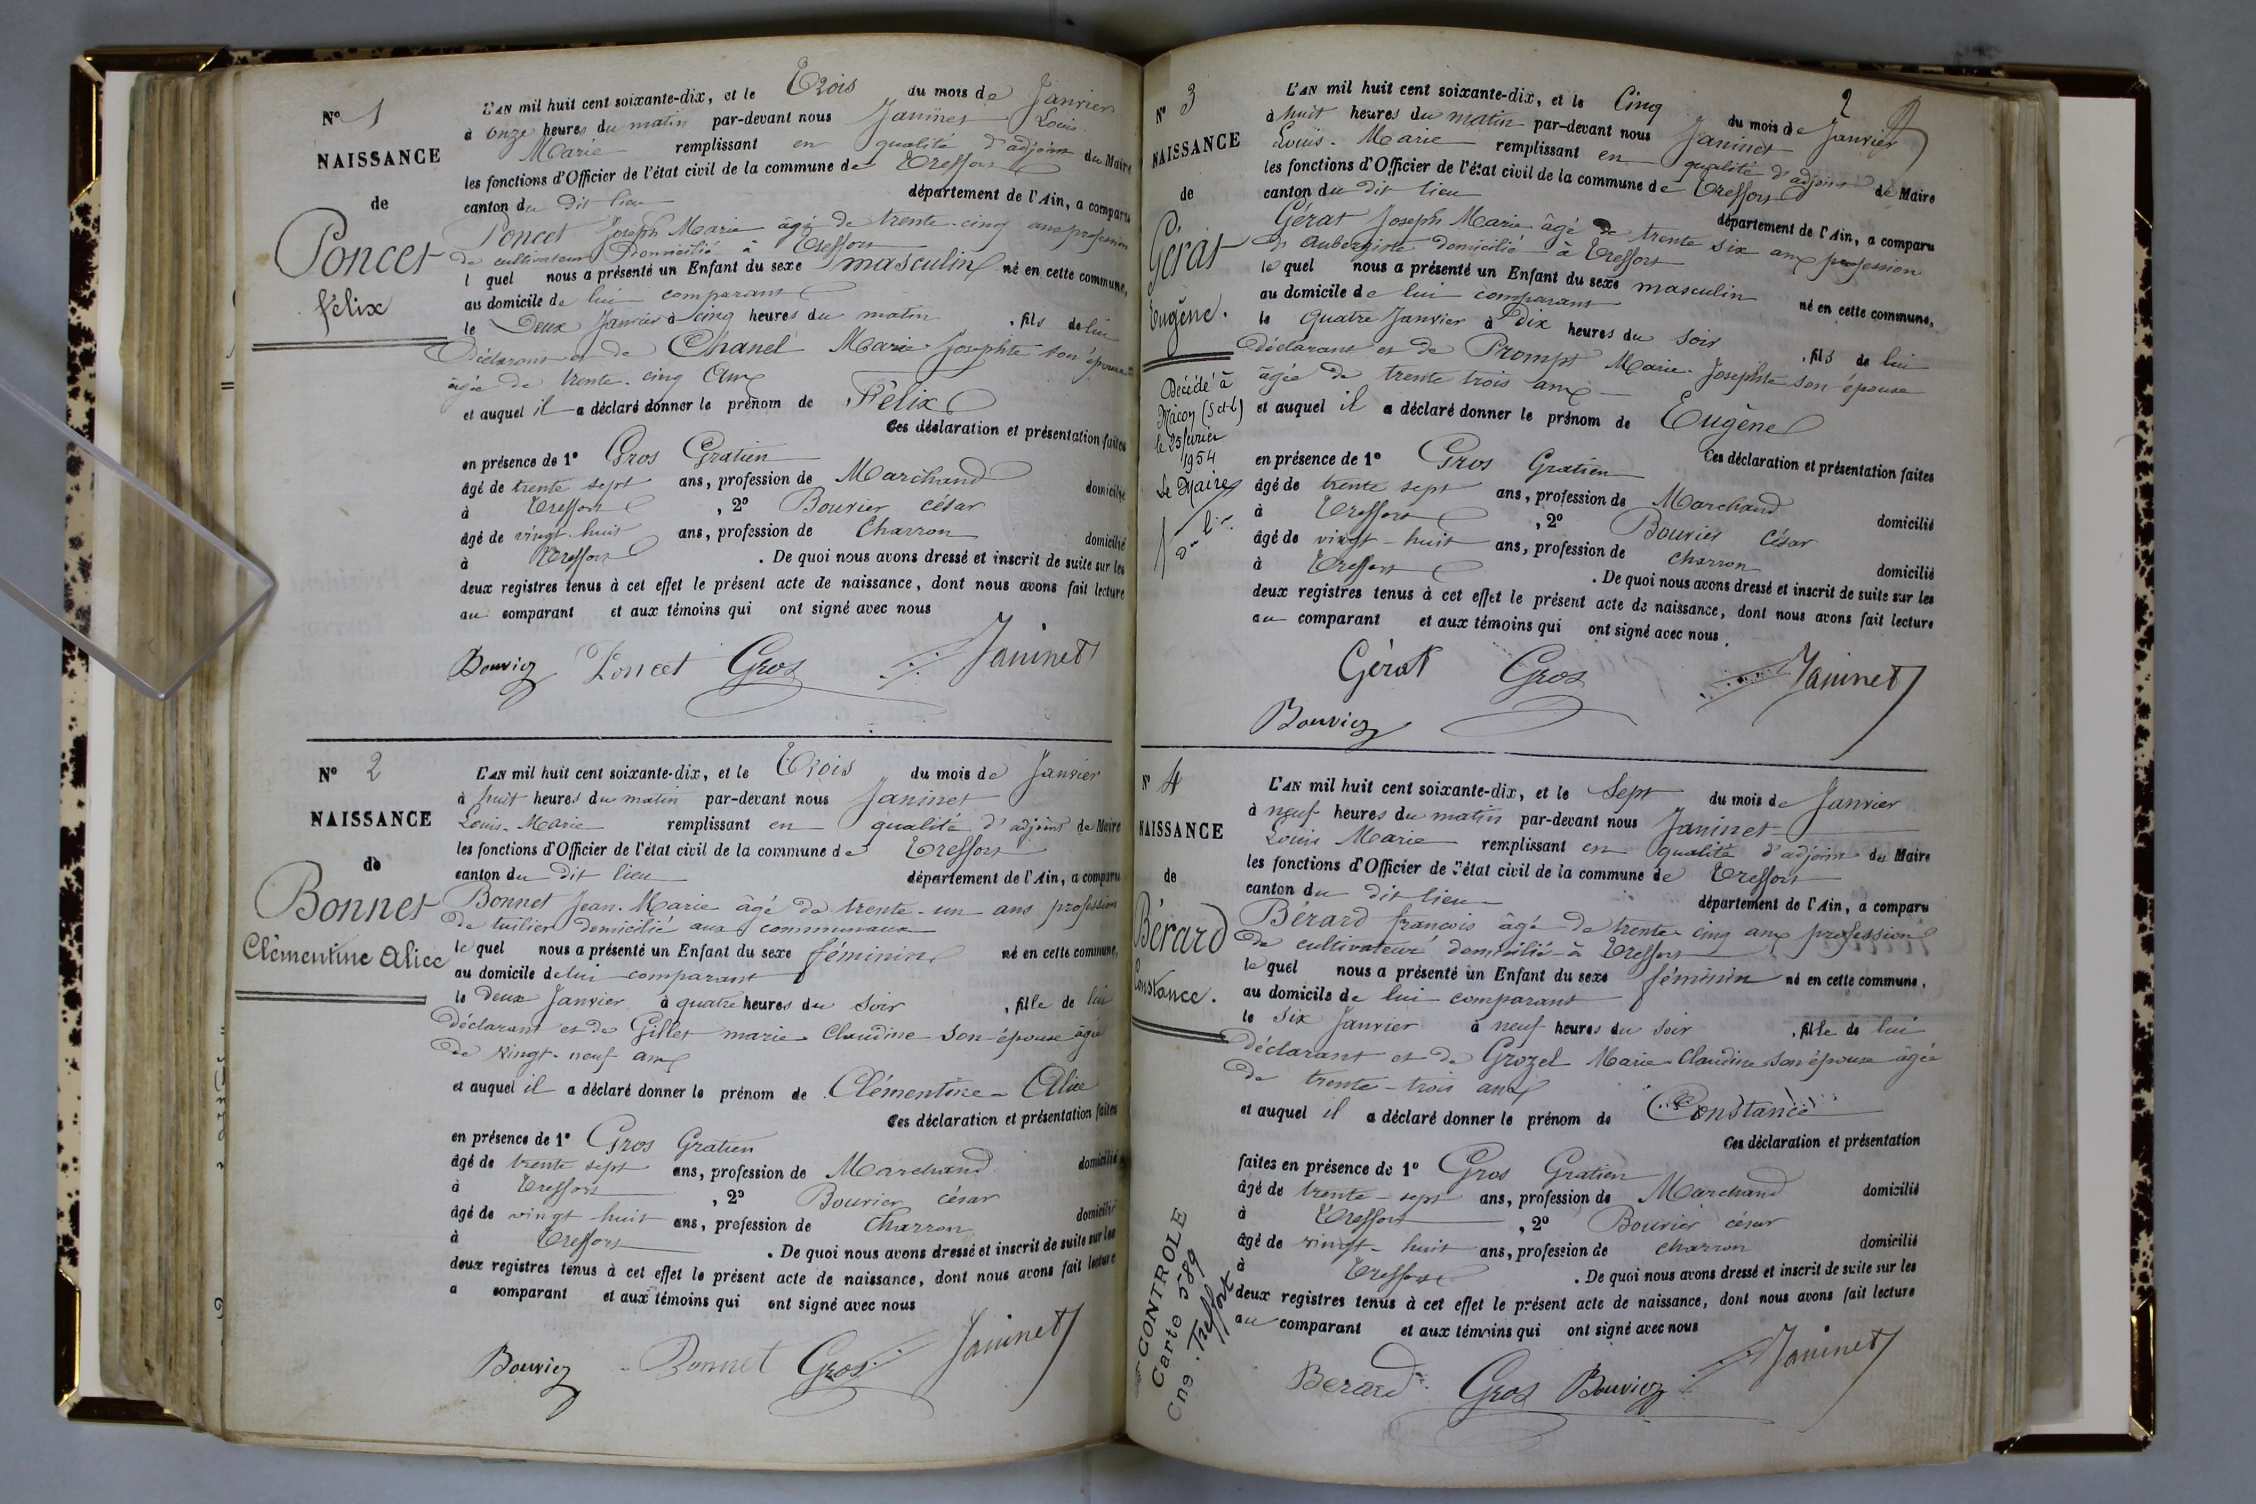 Nº 1
NAISSANCE
de
Poncet
félix
L'AN mil huit cent soixante-dix, et le Trois du mois de Janvier
à onze heures du matin par-devant nous Janinet Louis
Marie remplissant en qualité d'adjoint du Maire
les fonctions d'Officier de l'état civil de la commune de Treffort
canton du dit lieu département de l'Ain, a comparu
Poncet Joseph Marie âgé de trente-cinq ans profession
de cultivateur Domicilié à Treffort
l quel nous a présenté un Enfant du sexe masculin né en cette commune,
au domicile de lui comparant
le Deux Janvier à cinq heures du matin , fils de lui
Déclarant et de Chanel Marie Josephte son épouse
âgée de trente-cinq ans
et auquel il a déclaré donner le prénom de Félix
Ces déclaration et présentation faites
en présence de 1º Gros Gratien
âgé de trente sept ans, profession de Marchand domicilié
à Treffort , 2º Bouvier césar
âgé de vingt-huit ans, profession de Charron domicilié
à Treffort . De quoi nous avons dressé et inscrit de suite sur les
deux registres tenus à cet effet le présent acte de naissance, dont nous avons fait lecture
au comparant et aux témoins qui ont signé avec nous
Bouvier Poncet Gros Janinet
Nº 2
NAISSANCE
de
Bonnet
Clémentine Alice
L'AN mil huit cent soixante-dix, et le Trois du mois de Janvier
à huit heures du matin par-devant nous Janinet
Louis-Marie remplissant en qualité d'adjoint de Maire
les fonctions d'Officier de l'état civil de la commune de Treffort
canton du dit lieu département de l'Ain, a comparu
Bonnet Jean-Marie âgé de trente-un ans profession
de tuilier domicilié aux communaux
le quel nous a présenté un Enfant du sexe féminin né en cette commune,
au domicile de lui comparant
le deux Janvier à quatre heures du soir , fille de lui
déclarant et de Gillet marie-Claudine son épouse âgée
de vingt-neuf ans
et auquel il a déclaré donner le prénom de Clémentine-Alice
Ces déclaration et présentation faites
en présence de 1º Gros Gratien
âgé de trente sept ans, profession de Marchand domicilié
à Treffort , 2º Bouvier césar
âgé de vingt huit ans, profession de Charron domicilié
à Treffort . De quoi nous avons dressé et inscrit de suite sur les
deux registres tenus à cet effet le présent acte de naissance, dont nous avons fait lecture
a comparant et aux témoins qui ont signé avec nous
Bouvier Bonnet Gros Janinet
2
Nº 3
NAISSANCE
de
Gérat
Eugène.
Décédé à
Mâcon (S et L)
le 25 février
1954
Le Maire
L'AN mil huit cent soixante-dix, et le Cinq du mois de Janvier
à huit heures du matin par-devant nous Janinet
Louis-Marie remplissant en qualité d'adjoint de Maire
les fonctions d'Officier de l'état civil de la commune de Treffort
canton du dit lieu département de l'Ain, a comparu
Gérat Joseph Marie âgé de trente six ans profession
d'aubergiste domicilié à Treffort
le quel nous a présenté un Enfant du sexe masculin né en cette commune,
au domicile de lui comparant
le quatre Janvier à dix heures du soir , fils de lui
déclarant et de Prompt Marie-Josephte son épouse
âgée de trente trois ans
et auquel il a déclaré donner le prénom de Eugène
Ces déclaration et présentation faites
en présence de 1º Gros Gratien
âgé de trente sept ans, profession de Marchand domicilié
à Treffort , 2º Bouvier César
âgé de vingt-huit ans, profession de charron domicilié
à Treffort . De quoi nous avons dressé et inscrit de suite sur les
deux registres tenus à cet effet le présent acte de naissance, dont nous avons fait lecture
au comparant et aux témoins qui ont signé avec nous.
Gérat Gros Janinet
Bouvier
Nº 4
NAISSANCE
de
Bérard
Constance.
L'AN mil huit cent soixante-dix, et le Sept du mois de Janvier
à neuf heures du matin par-devant nous Janinet
Louis Marie remplissant en qualité d'adjoint du Maire
les fonctions d'Officier de l'état civil de la commune de Treffort
canton du dit lieu département de l'Ain, a comparu
Bérard françois âgé de trente-cinq ans profession
de cultivateur domicilié à Treffort
le quel nous a présenté un Enfant du sexe féminin né en cette commune,
au domicile de lui comparant
le Six Janvier à neuf heures du soir , fille de lui
déclarant et de Grozel Marie-Claudine son épouse âgée
de trente-trois ans
et auquel il a déclaré donner le prénom de Constance
Ces déclaration et présentation
faites en présence de 1º Gros Gratien
âgé de trente-sept ans, profession de Marchand domicilié
à Treffort , 2º Bouvier césar
âgé de vingt-huit ans, profession de charron domicilié
à Treffort . De quoi nous avons dressé et inscrit de suite sur les
deux registres tenus à cet effet le présent acte de naissance, dont nous avons fait lecture
au comparant et aux témoins qui ont signé avec nous
Berard Gros Bouvier Janinet
CONTROLE
Carte 589
Cne . Treffort